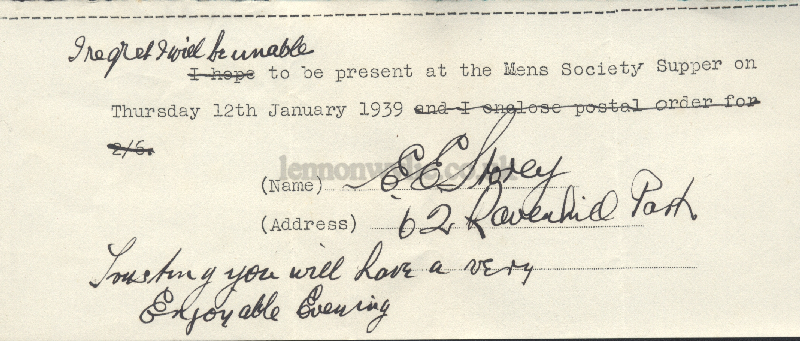 I regret I will be unable
I hope to be present at the Mens Society Supper on
Thursday 12th January 1939 and I enclose postal order for
2/6.
(Name) E.E. Storey
(Address) 62 Ravenhill Park
Trusting you will have a very
Enjoyable Evening